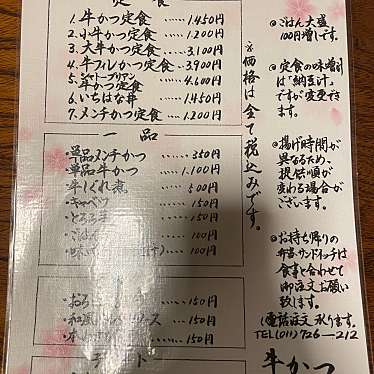 定食
1. 牛かつ定食 …… 1.450円
2. 小牛かつ定食 …… 1.200円
3. 大牛かつ定食 …… 3.100円
4. 牛フィレかつ定食 … 3.900円
5. シャトーブリアン
牛かつ定食 …… 4.600円
6. いちはな丼 …… 1.450円
7. メンチかつ定食 …… 1.200円
※価格は全て税込みです。
一品
・単品メンチかつ …… 350円
・単品牛かつ …… 1.100円
・牛しぐれ煮 …… 500円
・キャベツ …… 150円
・とろろ …… 150円
・ごはん 100円
・味 100円
・おろ 150円
・和風 ース …… 150円
150円
◎ごはん大盛
100円増しです。
◎定食の味噌汁
は「納豆汁」
ですが変更でき
ます。
◎揚げ時間が
異なるため、
提供順が
変わる場合が
ございます。
◎お持ち帰りの
弁当・サンドイッチは
食事と合わせて
御注文お願い
致します。
(電話注文承ります。
TEL(011)726-212
牛かつ